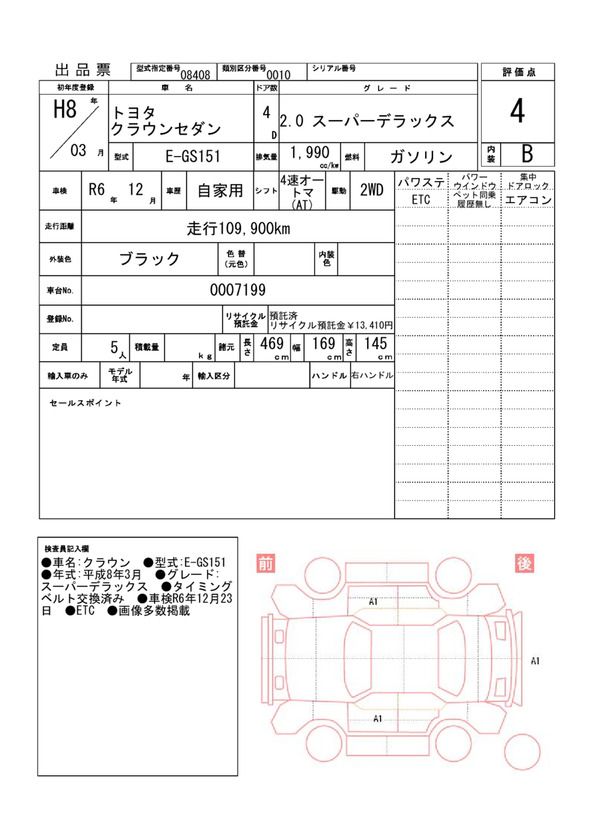 出品票
型式指定番号 08408 類別区分番号 0010 シリアル番号
評価点
初年度登録 車名 ドア数 グレード
H8 年 03 月
トヨタ
クラウンセダン
4 D
2.0 スーパーデラックス
4
型式 E-GS151 排気量 1,990 cc/kw 燃料 ガソリン
内装 B
車検 R6 年 12 月 車歴 自家用 シフト 4速オートマ(AT) 駆動 2WD
パワステ パワーウインドウ 集中ドアロック
ETC ペット同乗履歴無し エアコン
走行距離 走行109,900km
外装色 ブラック 色替(元色) 内装色
車台No. 0007199
登録No. リサイクル預託金 預託済
リサイクル預託金¥13,410円
定員 5人 積載量 kg 諸元 長さ 469 cm 幅 169 cm 高さ 145 cm
輸入車のみ モデル年式 年 輸入区分 ハンドル 右ハンドル
セールスポイント
検査員記入欄
●車名:クラウン ●型式:E-GS151
●年式:平成8年3月 ●グレード:
スーパーデラックス ●タイミング
ベルト交換済み ●車検R6年12月23
日 ●ETC ●画像多数掲載
前 後
A1
A1
A1